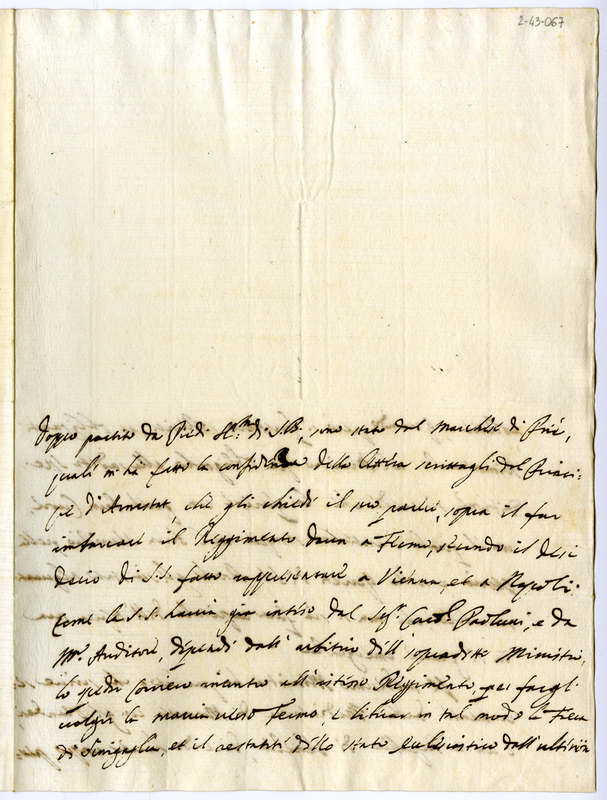 2-43-067
Doppo partito da Piedi SS.mi di S.B., sono stato dal Marchese di Prié,
quale m'ha fatto la confidenza della lettera scrittagli dal Princi-
pe d'Armstat, che gli chiede il suo parere, sopra il far
imbarcare il Reggimento Daun a Fiume, secondo il desi
derio di S.S. fatto rappresentare a Vienna, et a Napoli.
Come la S.S. haverà già inteso dal Sig.r Card.l Paolucci, e da
Mr. Auditore, dipende dall' arbitrio dell' sopradetto Ministro,
lo spedir Corriero incontro all' istesso Reggimento, per fargli
volger la marcia verso Fermo e liberar in tal modo la Fiera
di Sinigaglia, et il restante dello stato Ecclesiastico dall'